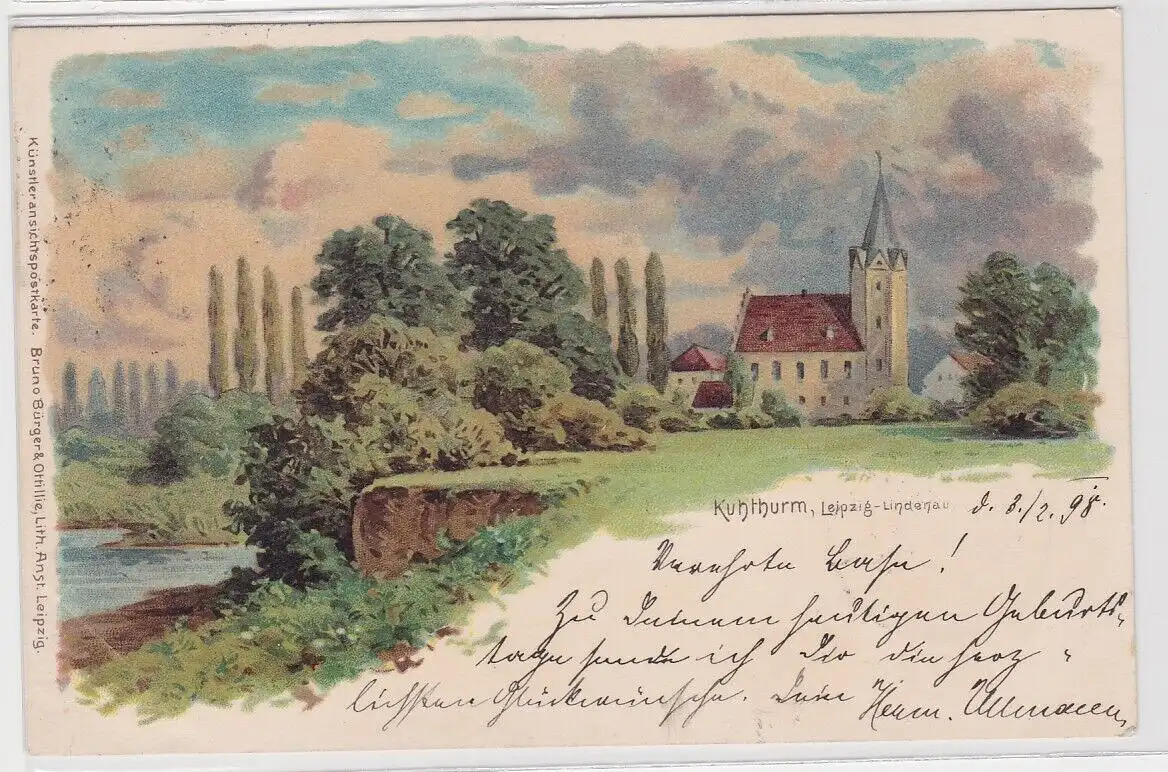 Künstleransichtspostkarte. Bruno Bürger & Ottillie, Lith. Anst. Leipzig.
Kuhthurm, Leipzig-Lindenau
d. 3./2. 98.
Verehrte Base!
Zu Deinem heutigen Geburts-
tage sende ich Dir die herz-
lichsten Glückwünsche. Dein
Herm. Ullmann,